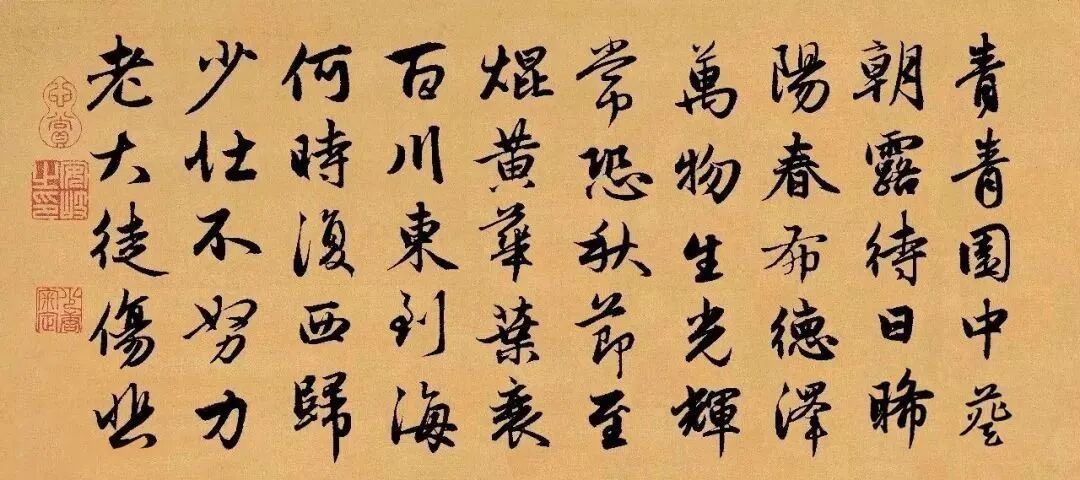 青青園中葵
朝露待日晞
陽春布德澤
萬物生光輝
常恐秋節至
焜黃華葉衰
百川東到海
何時復西歸
少壮不努力
老大徒傷悲